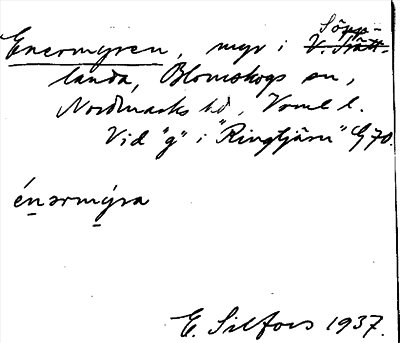 Enermyren, myr i Söpp-
landa, Blomskogs sn,
Nordmarks hd, Vrml l.
Vid "g" i "Ringtjärn" G 70.
énərmýra
E. Silfors 1937.